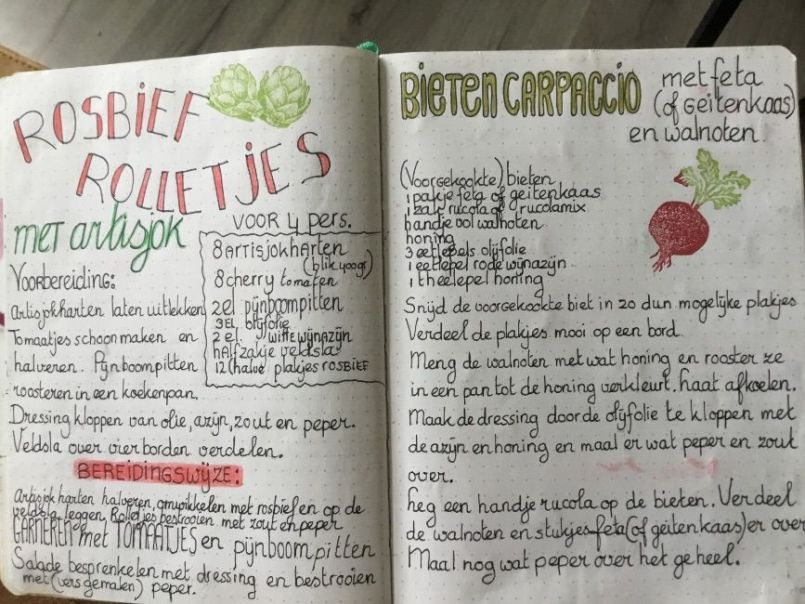 ROSBIEF
ROLLETJES
met artisjok
VOOR 4 pers.
8 artisjokharten
(blik 400g)
8 cherry tomaten
2el pijnboompitten
3EL olijfolie
2 el. witte wijnazijn
half zakje veldsla
12 (halve plakjes ROSBIEF
Voorbereiding:
Artisjokharten laten uitlekken
Tomaatjes schoon maken en
halveren. Pijnboompitten
roosteren in een koekenpan.
Dressing kloppen van olie, azijn, zout en peper.
Veldsla over vier borden verdelen.
BEREIDINGSWIJZE:
Artisjokharten halveren, omwikkelen met rosbief en op de
veldsla leggen. Rolletjes bestrooien met zout en peper
GARNEREN met TOMAATJES en pijnboompitten
Salade besprenkelen met dressing en bestrooien
met (vers gemalen) peper.
BIETEN CARPACCIO met feta
(of geitenkaas)
en walnoten.
(Voorgekookte) bieten
1 pakje feta of geitenkaas
1 zak rucola of rucolamix
handje vol walnoten
honing
3 eetlepels olijfolie
1 eetlepel rode wijnazijn
1 theelepel honing
Snijd de voorgekookte biet in zo dun mogelijke plakjes
Verdeel de plakjes mooi op een bord.
Meng de walnoten met wat honing en rooster ze
in een pan tot de honing verkleurt. Laat afkoelen.
Maak de dressing door de olijfolie te kloppen met
de azijn en honing en maal er wat peper en zout
over.
Leg een handje rucola op de bieten. Verdeel
de walnoten en stukjes feta (of geitenkaas) er over
Maal nog wat peper over het geheel.